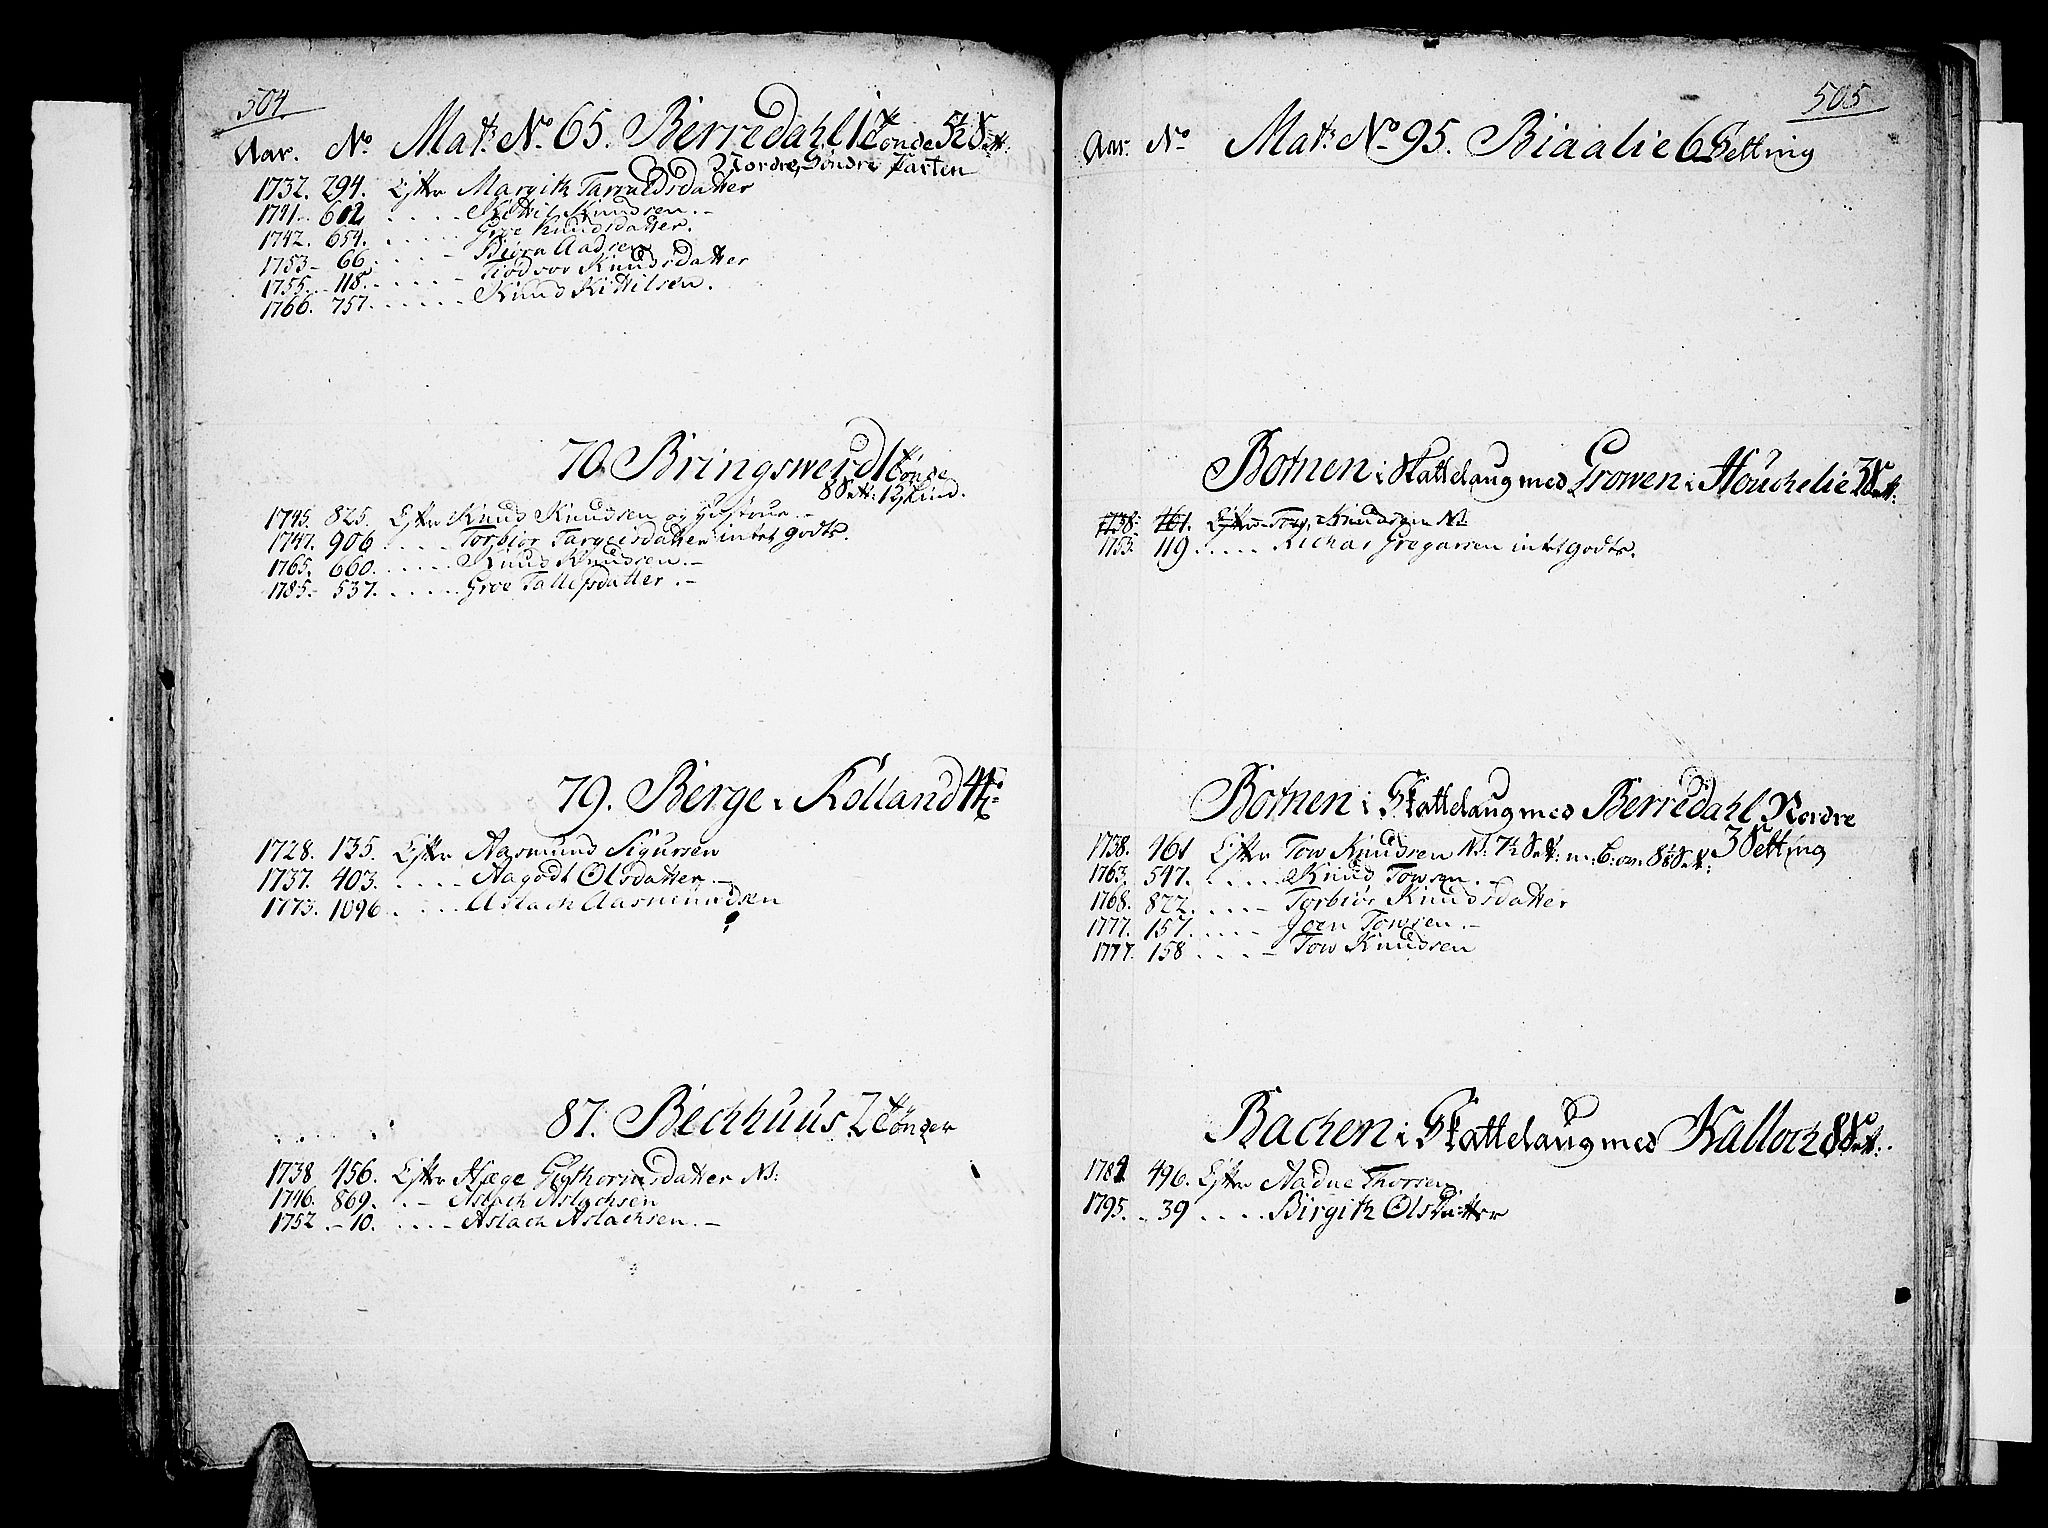 504
Aar. No. Mat: No. 65. Berredahl 1 tønde 5½ Sett:
Nordre, Søndre Parten
1732. 294. Efter Margith Tarjuldsdatter
1741. 602 . . . . Kittil Knudsen. –
1742. 654. . . . . . Groe Knudsdatter.
1753 – 66. . . . – Biørn Aadsen
1755. – 118. . . . . – Tiodvor Knudsdatter
1766. 757. . . . . . Knud Kittilsen.
70. Bringswerd 1 tønde
8 Sett: 1 Skind.
1745. 825. Efter Knud Knudsen og Hustrue. –
1747. 906 . . . . Torbior Targeisdatter intet godts.
1765. 660. . . . . . Knud Knudsen. –
1785. – 537. . . . . . Groe Tallefsdatter. –
79. Berge i Kolland 4 tr:
1728. 135. Efter Aasmund Sigursen
1737. 403. . . . . Aagodt Olsdatter –
1773. 1096 . . . . Aslach Aasmundsen
87. Bechhuus 2 tønder
1738 456. Efter Hæge Gunthormsdatter N:
1746. 869. . – Aslach Aslachsen
1752 – 10. . . . . Aslach Aslachsen. –
505
Aar. No Mat: No. 95. Biaalie 6 Setting
Botnen i Skattelaug med Growen i Houchelie 3 Sett:
1738. 461. Efter Tow Knudsen N:
1753. 119 . . . . . Richar Gregarsen intet godts.
Botnen i Skattelaug med Berredahl Nordre
3 Setting
1738. 461 Efter Tow Knudsen N: 7½ Sett: m: B: om 8½ Sett:
1763. 547. . . . . . Knud Towsen. –
1768. 822. . . . – Torbiør Knudsdatter
1777. 157. . . . . – Joen Towsen. –
1777. 158 . . . . – Tow Knudsen
Bachen i Skattelaug med Kalloch 8 Sett:
1784 496. Efter Aadne Thorsen
1795. . 39 . . . . Birgith Olsdatter